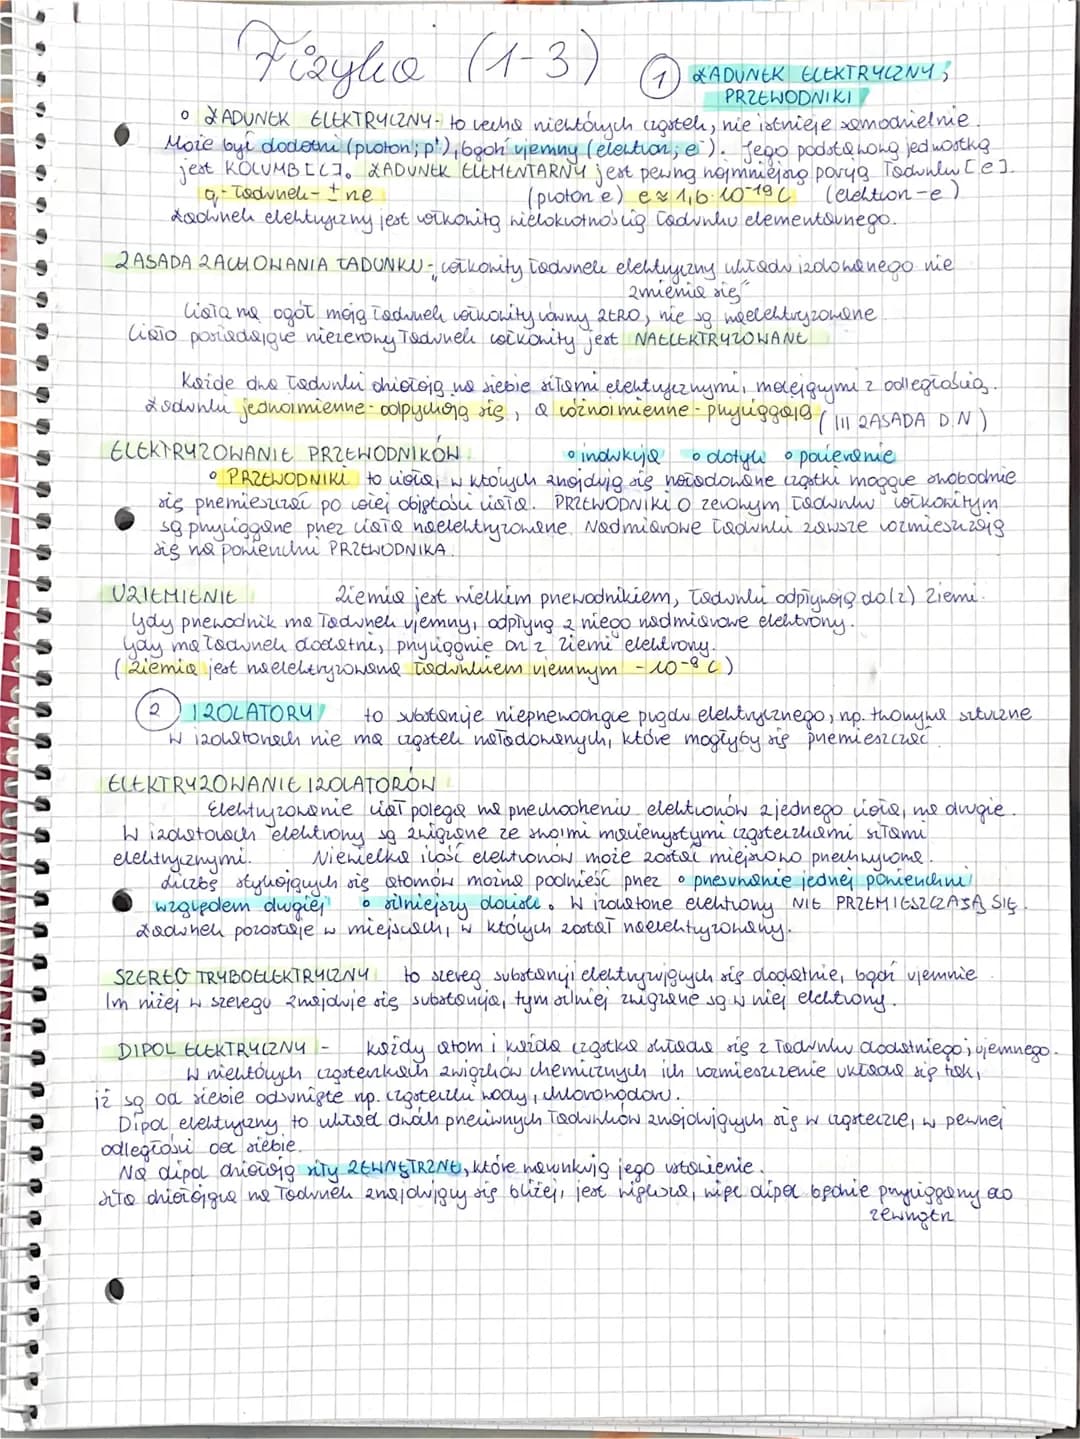 Fizyka (1-3)
① ŁADUNEK ELEKTRYCZNY,
PRZEWODNIKI
° ŁADUNEK ELEKTRYCZNY- to cecha niektórych cząstek, nie istnieje samodzielnie.
Może być dodatni (proton; p⁺), bądź ujemny (elektron; e⁻). Jego podstawową jednostką
jest KOLUMB [C]. ŁADUNEK ELEMENTARNY jest pewną najmniejszą porcją ładunku [e].
q - ładunek - ± ne (proton e) e ≈ 1,6·10⁻¹⁹ C (elektron -e)
Ładunek elektryczny jest całkowitą wielokrotnością ładunku elementarnego.
ZASADA ZACHOWANIA ŁADUNKU - „całkowity ładunek elektryczny układu izolowanego nie
zmienia się"
Ciała na ogół mają ładunek całkowity równy ZERO, nie są naelektryzowane
Ciało posiadające niezerowy ładunek całkowity jest NAELEKTRYZOWANE
Każde dwa ładunki działają na siebie siłami elektrycznymi, malejącymi z odległością.
Ładunki jednoimienne - odpychają się, a różnoimienne - przyciągają (III ZASADA D.N)
ELEKTRYZOWANIE PRZEWODNIKÓW ° indukcja ° dotyk ° pocieranie
° PRZEWODNIKI to ciała, w których znajdują się naładowane cząstki mogące swobodnie
się przemieszczać po całej objętości ciała. PRZEWODNIKI O zerowym ładunku całkowitym
są przyciągane przez ciała naelektryzowane. Nadmiarowe ładunki zawsze rozmieszczają
się na powierzchni PRZEWODNIKA.
UZIEMIENIE Ziemia jest wielkim przewodnikiem, ładunki odpływają do (z) Ziemi.
Gdy przewodnik ma ładunek ujemny, odpłyną z niego nadmiarowe elektrony.
Gdy ma ładunek dodatni, przyciągnie on z ziemi elektrony.
(Ziemia jest naelektryzowana ładunkiem ujemnym -10⁻⁸ C)
② IZOLATORY to substancje nieprzewodzące prądu elektrycznego, np. tworzywa sztuczne
W izolatorach nie ma cząstek naładowanych, które mogłyby się przemieszczać.
ELEKTRYZOWANIE IZOLATORÓW
Elektryzowanie ciał polega na przechodzeniu elektronów z jednego ciała, na drugie.
W izolatorach elektrony są związane ze swoimi macierzystymi cząsteczkami siłami
elektrycznymi. Niewielka ilość elektronów może zostać miejscowo przechwycona.
Liczbę stykających się atomów można podnieść przez ° przesuwanie jednej powierzchni
względem drugiej ° silniejszy docisk. W izolatorze elektrony NIE PRZEMIESZCZAJĄ SIĘ.
Ładunek pozostaje w miejscach, w których został naelektryzowany.
SZEREG TRYBOELEKTRYCZNY to szereg substancji elektryzujących się dodatnie, bądź ujemnie
Im niżej w szeregu znajduje się substancja, tym silniej związane są w niej elektrony.
DIPOL ELEKTRYCZNY - każdy atom i każda cząstka składa się z ładunku dodatniego i ujemnego.
W niektórych cząsteczkach związków chemicznych ich rozmieszczenie układa się tak,
iż są od siebie odsunięte np. cząsteczki wody, chlorowodoru.
Dipol elektryczny to układ dwóch przeciwnych ładunków znajdujących się w cząsteczce, w pewnej
odległości od siebie.
Na dipol działają siły ZEWNĘTRZNE, które warunkują jego ustawienie.
Siła działająca na ładunek znajdujący się bliżej, jest większa, więc dipol będzie przyciągany do
zewnątrz